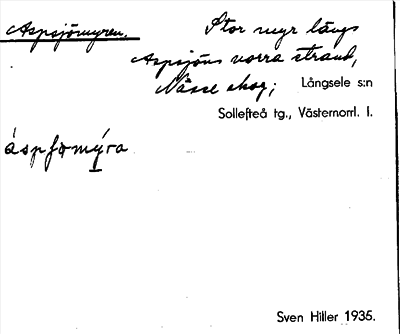 Aspsjömyren.
Stor myr längs
Aspsjöns norra strand,
Nässe skog; Långsele s:n
Sollefteå tg., Västernorrl. l.
Sven Hiller 1935.